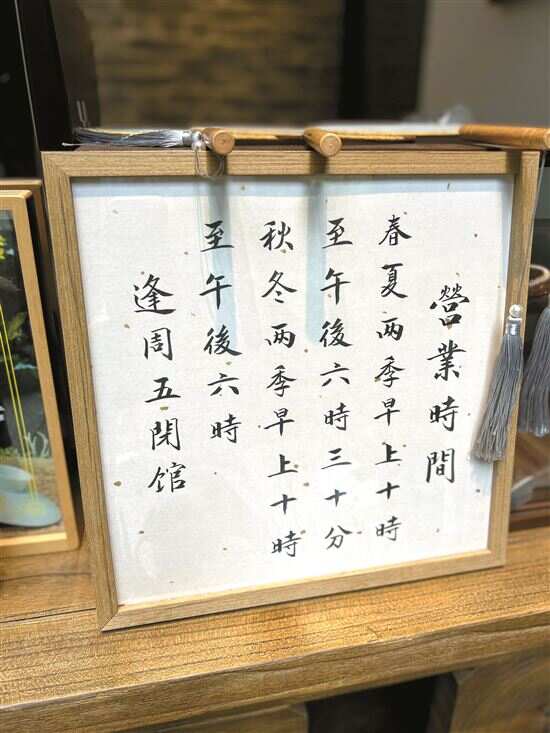 營業時間
春夏两季早上十時
至午後六時三十分
秋冬两季早上十時
至午後六時
逢周五閉馆